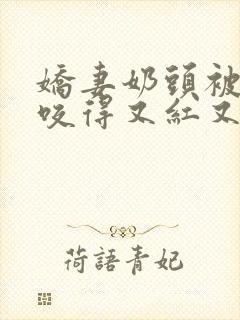 嬌妻奶頭被
咬得又紅又
荷語青妃